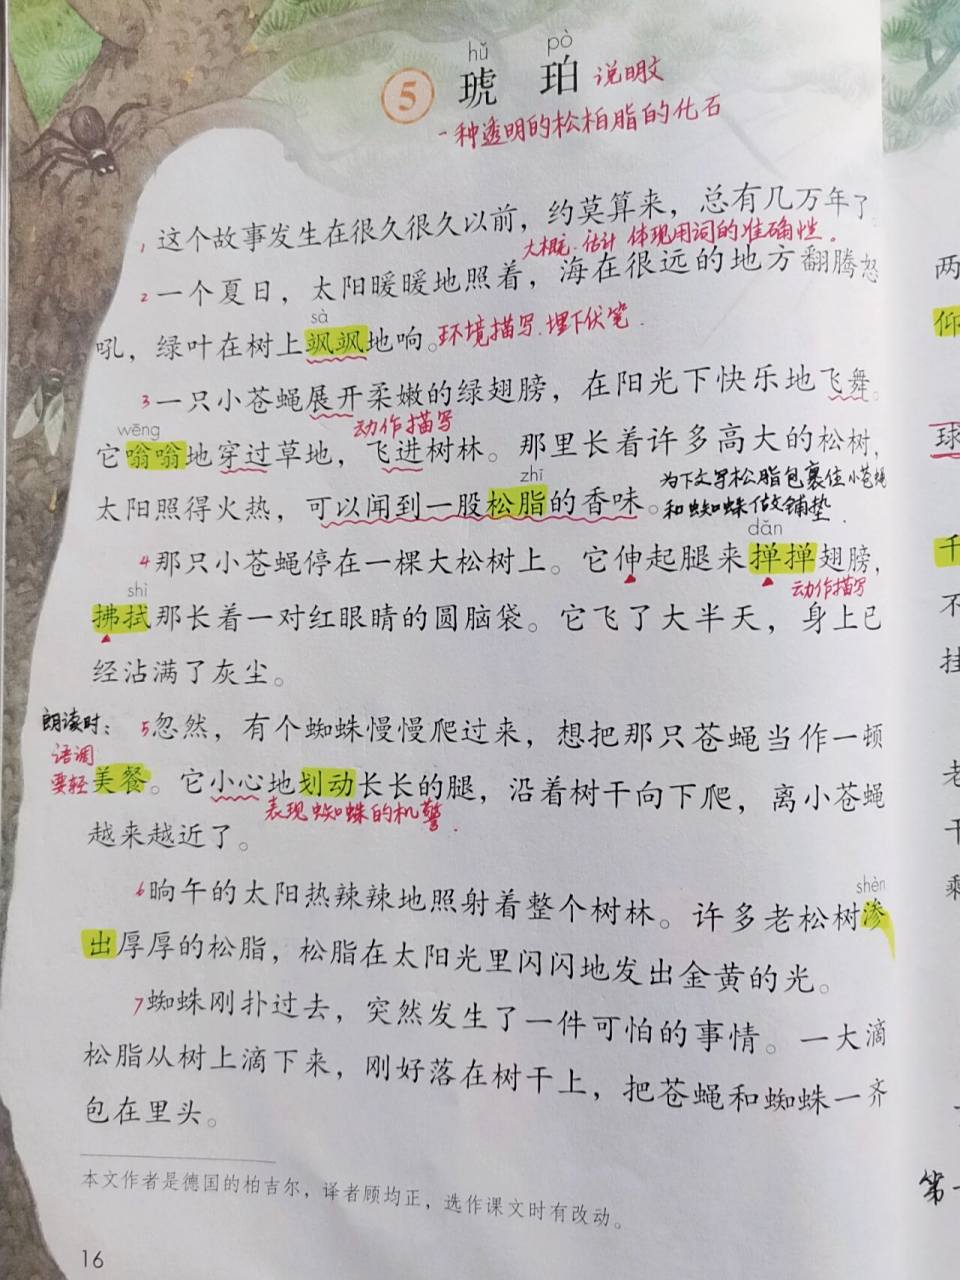 hǔ pò
5 琥 珀 说明文
一种透明的松柏脂的化石
1 这个故事发生在很久很久以前，约莫算来，总有几万年了。
大概．估计 体现用词的准确性。
2 一个夏日，太阳暖暖地照着，海在很远的地方翻腾怒
sà
吼，绿叶在树上飒飒地响。环境描写．埋下伏笔．
3 一只小苍蝇展开柔嫩的绿翅膀，在阳光下快乐地飞舞。
动作描写
wēng
它嗡嗡地穿过草地，飞进树林。那里长着许多高大的松树，
zhī
太阳照得火热，可以闻到一股松脂的香味。
为下文写松脂包裹住小苍蝇
和蜘蛛做铺垫．
dǎn
4 那只小苍蝇停在一棵大松树上。它伸起腿来掸掸翅膀，
动作描写
shì
拂拭那长着一对红眼睛的圆脑袋。它飞了大半天，身上已
经沾满了灰尘。
朗读时：
语调
要轻
5 忽然，有个蜘蛛慢慢爬过来，想把那只苍蝇当作一顿
美餐。它小心地划动长长的腿，沿着树干向下爬，离小苍蝇
表现蜘蛛的机警．
越来越近了。
6 晌午的太阳热辣辣地照射着整个树林。许多老松树渗
shèn
出厚厚的松脂，松脂在太阳光里闪闪地发出金黄的光。
7 蜘蛛刚扑过去，突然发生了一件可怕的事情。一大滴
松脂从树上滴下来，刚好落在树干上，把苍蝇和蜘蛛一齐
包在里头。
本文作者是德国的柏吉尔，译者顾均正，选作课文时有改动。
16
两
仰
球
千
不
挂
老
干
剩
第一